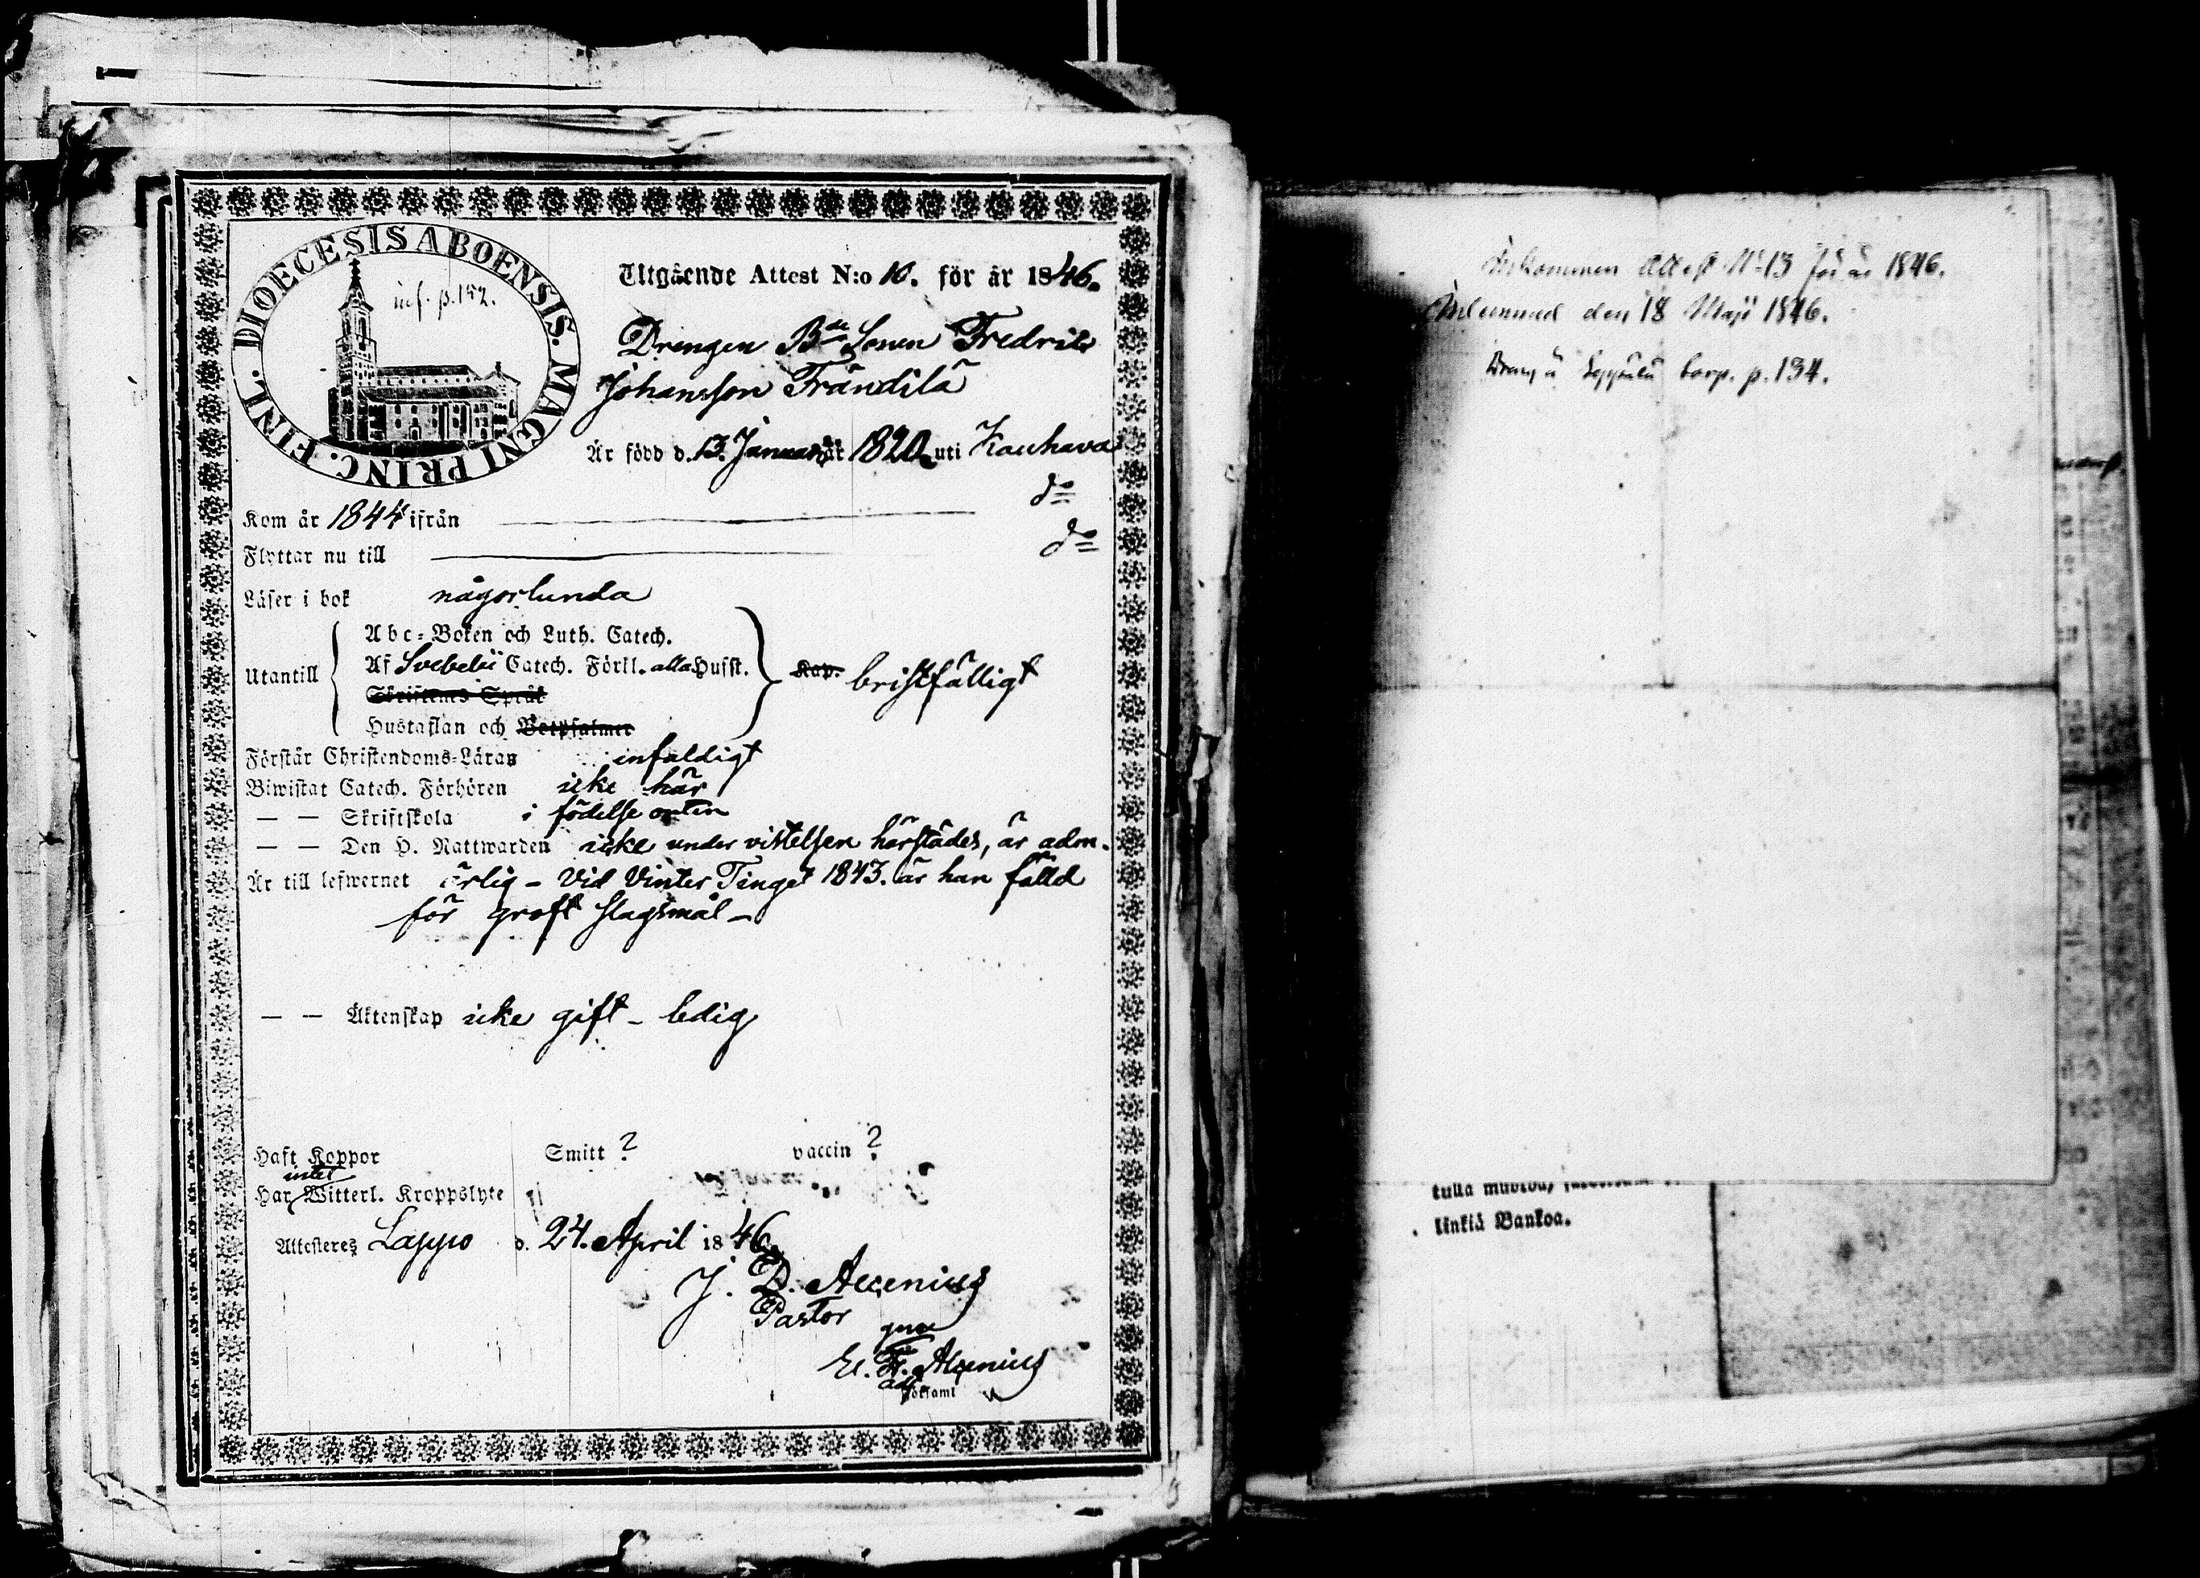 DIOECESIS ABOENSIS. MAGNI PRINC. FINL.
inf. p. 152.
Utgående Attest N:o 10. för år 1846.
Drengen Bde Sonen Fredrik
Johansson Frändilä
Är född d. 13. Januari år 1820 uti Kauhava
Kom år 1844 ifrån do
Flyttar nu till do
Läser i bok någorlunda
Abc-Boken och Luth. Catech.
Utantill Af Svebelii Catech. Förkl. alla Husst. Kap. bristfälligt
Skriftenes Språk
Hustaflan och Botpsalmer
Förstår Christendoms-Läran infaldigt
Biwistat Catech. Förhören icke här
— — Skriftskola i födelse orten
— — Den H. Nattwarden icke under vistelsen härstädes, är adm.
Är till lefwernet ärlig - Vid Vinter Tinget 1843. är han fälld
för groft slagsmål -
— — Äktenskap icke gift - ledig
Haft Koppor Smitt ? vaccin ?
intet
Har Witterl. Kroppslyte
Attesteres Lappo d. 24. April 1846.
J. D. Alcenius
Pastor
genom
El. F. Alcenius
adj.
Inkommen Attest No 13 för år 1846.
den 18 Maji 1846.
Dräng å Leppälä p. 134.
linkiä Bankoa.